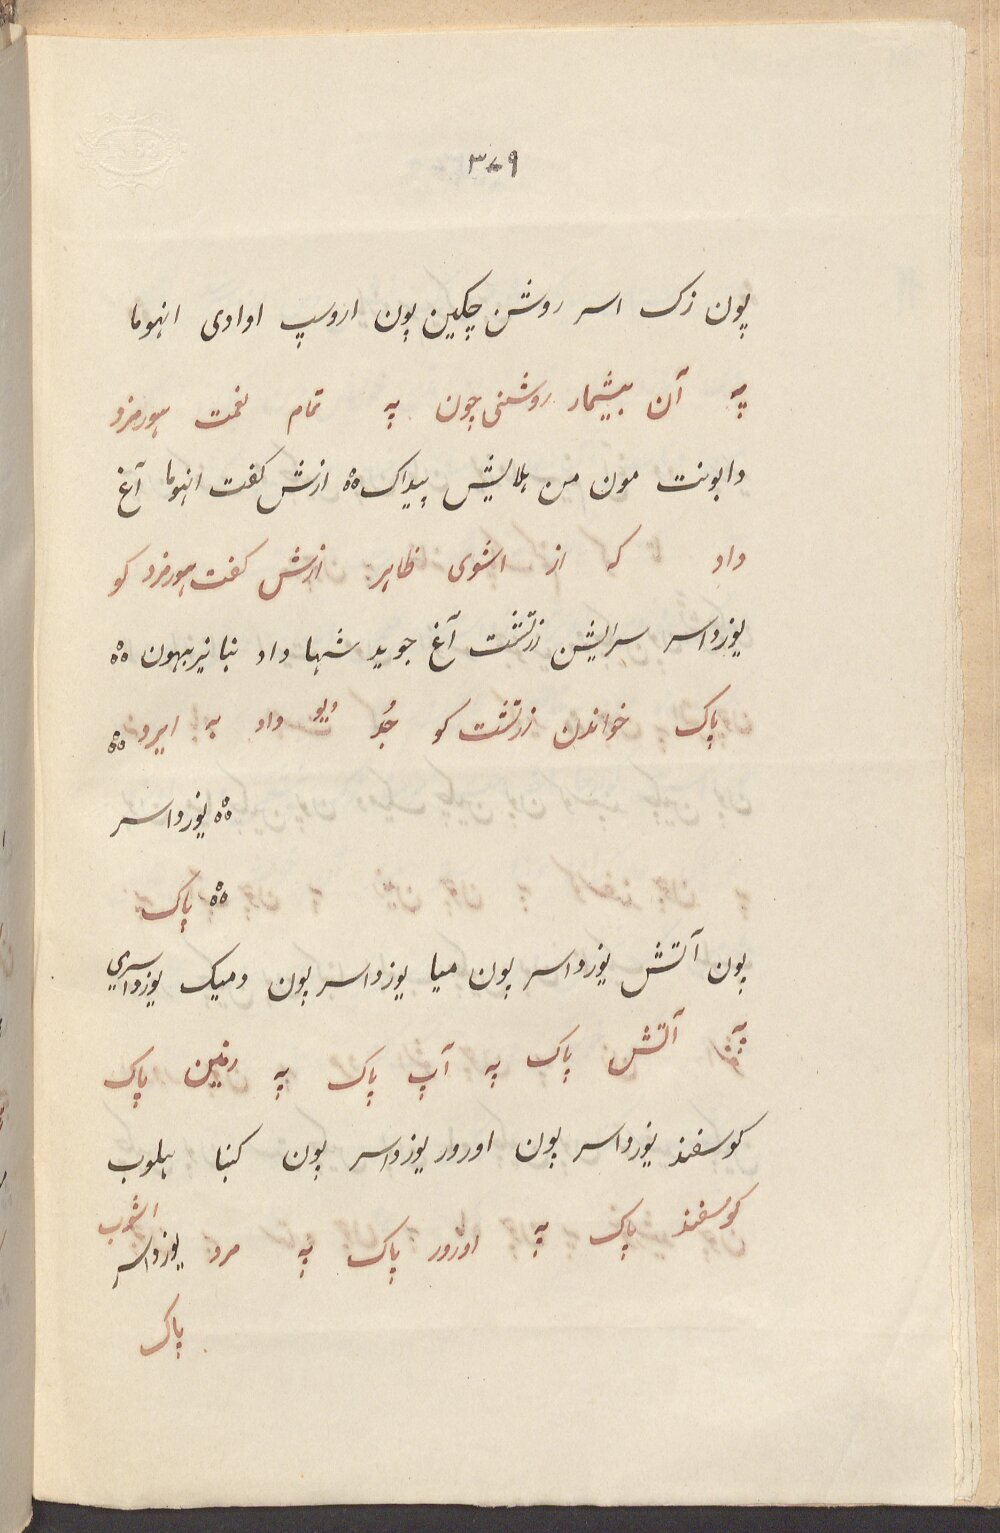 ۳۷۹
پون زک اسر روشن چکین پون اروسپ اوادی انهوما
په آن بیشمار روشنی چون په تمام نعمت هورمزد
دابونت مون من هلالیش پیداک ازش کفت انهوما آغ
داد که از اشوی ظاهر ازش کفت هورمزد کو
یوزداسر سرایشن زرتشت آغ جوید شهدا داد نبا نیربهون
پاک خواندن زرتشت کو جُد دیو داد به ایرد
یوزداسر
پاک
پون آتش یوزداسر پون میا یوزداسر پون دمیک یوزداسری
په آتش پاک په آب پاک په زمین پاک
کوسفند یوزداسر پون اورور یوزداسر پون کنبا هلوب
کوسفند پاک په اورور پاک په مرد اشوب
یوزداسر
پاک